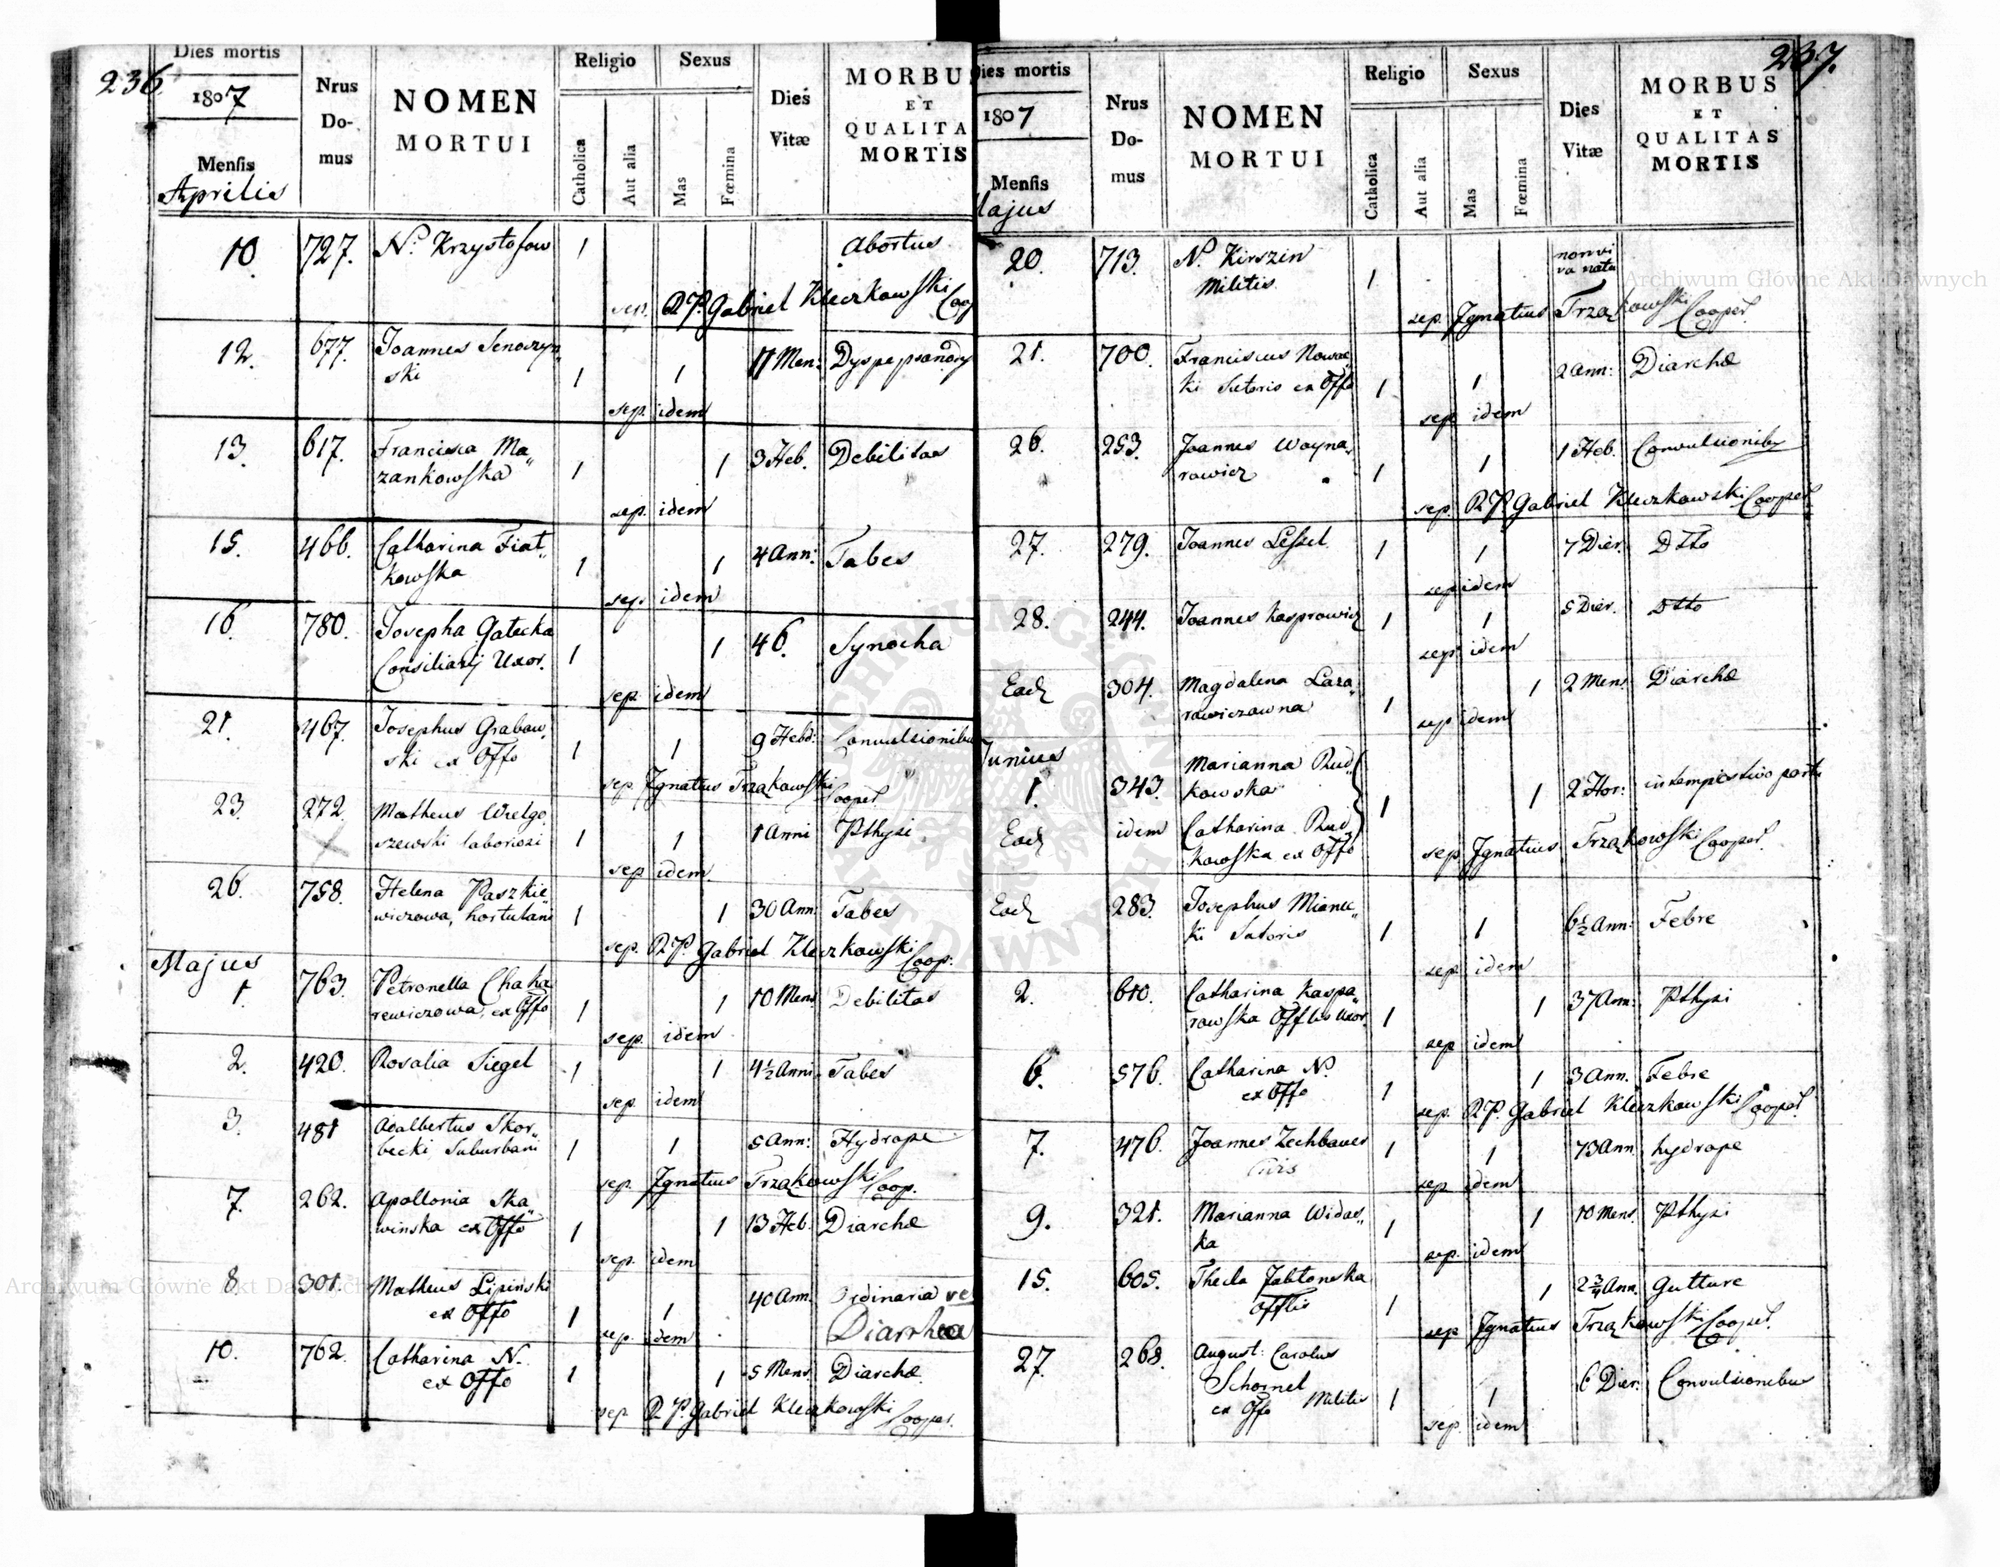 236.
Dies mortis
1807
Mensis
Aprilis
Nrus
Do-
mus
NOMEN
MORTUI
Religio
Catholica
Aut alia
Sexus
Mas
Fœmina
Dies
Vitæ
MORBUS
ET
QUALITA
MORTIS
10. 727. N. Krzystofow 1 Abortus
sep. R.P. Gabriel Kleczkowski Coop
12. 677. Joannes Senoczyn„
ski 1 1 11 Men:
sep. idem
13. 617. Francisca Ma„
zankowska 1 1 3 Heb. Debilitas
sep. idem
15. 466. Catharina Fiat„
kowska 1 1 4 Ann: Tabes
sep. idem
16. 780. Josepha Gatecka
Consiliarij Uxor. 1 1 46. Synocha
sep. idem
21. 467. Josephus Grabow„
ski ex Offo 1 1 9 Hebd: Convulsionibus
sep. Ignatius Trzakowski Cooper
23. 272. Matheus Wielgo
szewski laboriosi 1 1 1 Anni Pthysi
sep idem
26. 758. Helena Paszkie„
wiczowa, hortulani 1 1 30 Ann: Tabes
sep. R.P. Gabriel Kleczkowski Coop.
Majus
1. 763. Petronella Chaka
rewiczowa, ex Offo 1 1 10 Mens Debilitas
sep. idem
2. 420. Rosalia Siegel 1 1 4½ Anni Tabes
sep. idem
3. 481 Adalbertus Skor„
becki Suburbani 1 1 5 Ann: Hydrope
sep. Ignatius Trzakowski Coop.
7. 262. Apollonia Ska„
winska ex Offo 1 1 13 Heb. Diarchæ
sep. idem
8. 301. Matheus Lipinski
ex Offo 1 1 40 Ann. Ordinaria ve
Diarrhea
sep. idem
10. 762. Catharina N.
ex Offo 1 1 5 Mens Diarchæ
sep. R.P. Gabriel Kleczkowski Cooper.
237.
Dies mortis
1807
Mensis
Majus
Nrus
Do-
mus
NOMEN
MORTUI
Religio
Catholica
Aut alia
Sexus
Mas
Fœmina
Dies
Vitæ
MORBUS
ET
QUALITAS
MORTIS
20. 713. N. Kirszin
Militis 1 non vi
va nata
sep. Ignatius Trzakowski Cooper.
21. 700. Franciscus Nowac„
ki Sutoris ex Offo 1 1 2 Ann: Diarchæ
sep idem
26. 253. Joannes Woyna„
rowicz 1 1 1 Heb. Convulsionibus
sep. R.P. Gabriel Kleczkowski Cooper
27. 279. Joannes Lessel 1 1 7 Dier. Dtto
sep idem
28. 244. Joannes Kasprowicz 1 1 5 Dier. Dtto
sep. idem
Ead 304. Magdalena Laza„
rowiczowna 1 1 2 Mens Diarchæ
sep idem
Junius
1. 343. Marianna Rud„
kowska 1 1 2 Hor: intempestivo partu
Ead idem Catharina Rud„
kowska ex Offo
sep. Ignatius Trzakowski Cooper.
Ead 283. Josephus Mianec„
ki Sutoris 1 1 6½ Ann: Febre
sep. idem
2. 610. Catharina Kaspa„
rowska Offlis Uxor. 1 1 37 Ann: Pthysi
sep idem
6. 576. Catharina N.
ex Offo 1 1 3 Ann. Febre
sep. R.P. Gabriel Kleczkowski Cooper
7. 476. Joannes Zechbauer
1 1 73 Ann hydrope
sep. idem
9. 321. Marianna Widac„
ka 1 1 10 Mens. Pthysi
sep. idem
15. 605. Thecla Jabtonska
Offlis 1 1 2¾ Ann. Gutture
sep Ignatius Trzakowski Cooper.
27. 268. August: Carolus
Schornel
ex Offo Militis 1 1 6 Dier: Convulsionibus
sep. idem
Archiwum Główne Akt Dawnych
Archiwum Główne Akt Dawnych
ARCHIWUM GŁÓWNE
AKT DAWNYCH